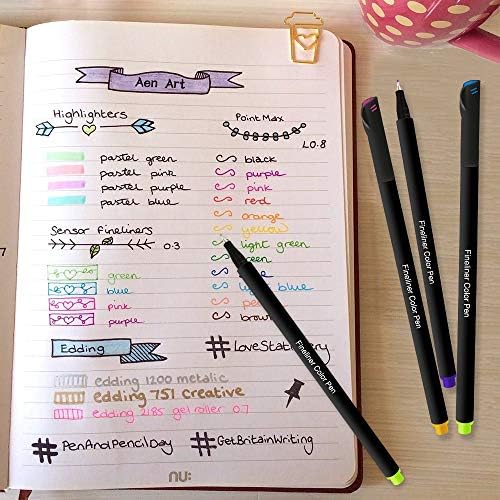 Aen Art
Highlighters
pastel green
pastel pink
pastel purple
pastel blue
Sensor Fineliners
0.3
green
blue
pink
purple
Point Max
L0.8
black
purple
pink
red
orange
yellow
light green
green
blue
blue
brown
Edding
#LoveStationery
edding 1200 metalic
edding 751 creative
edding 2185 gel roller 0.7
#PenAndPencilDay
#GetBritainWriting
nu:
7
Fineliner Color Pen
Fineliner Color Pen
Fineliner Color Pen
Fineliner Color Pen